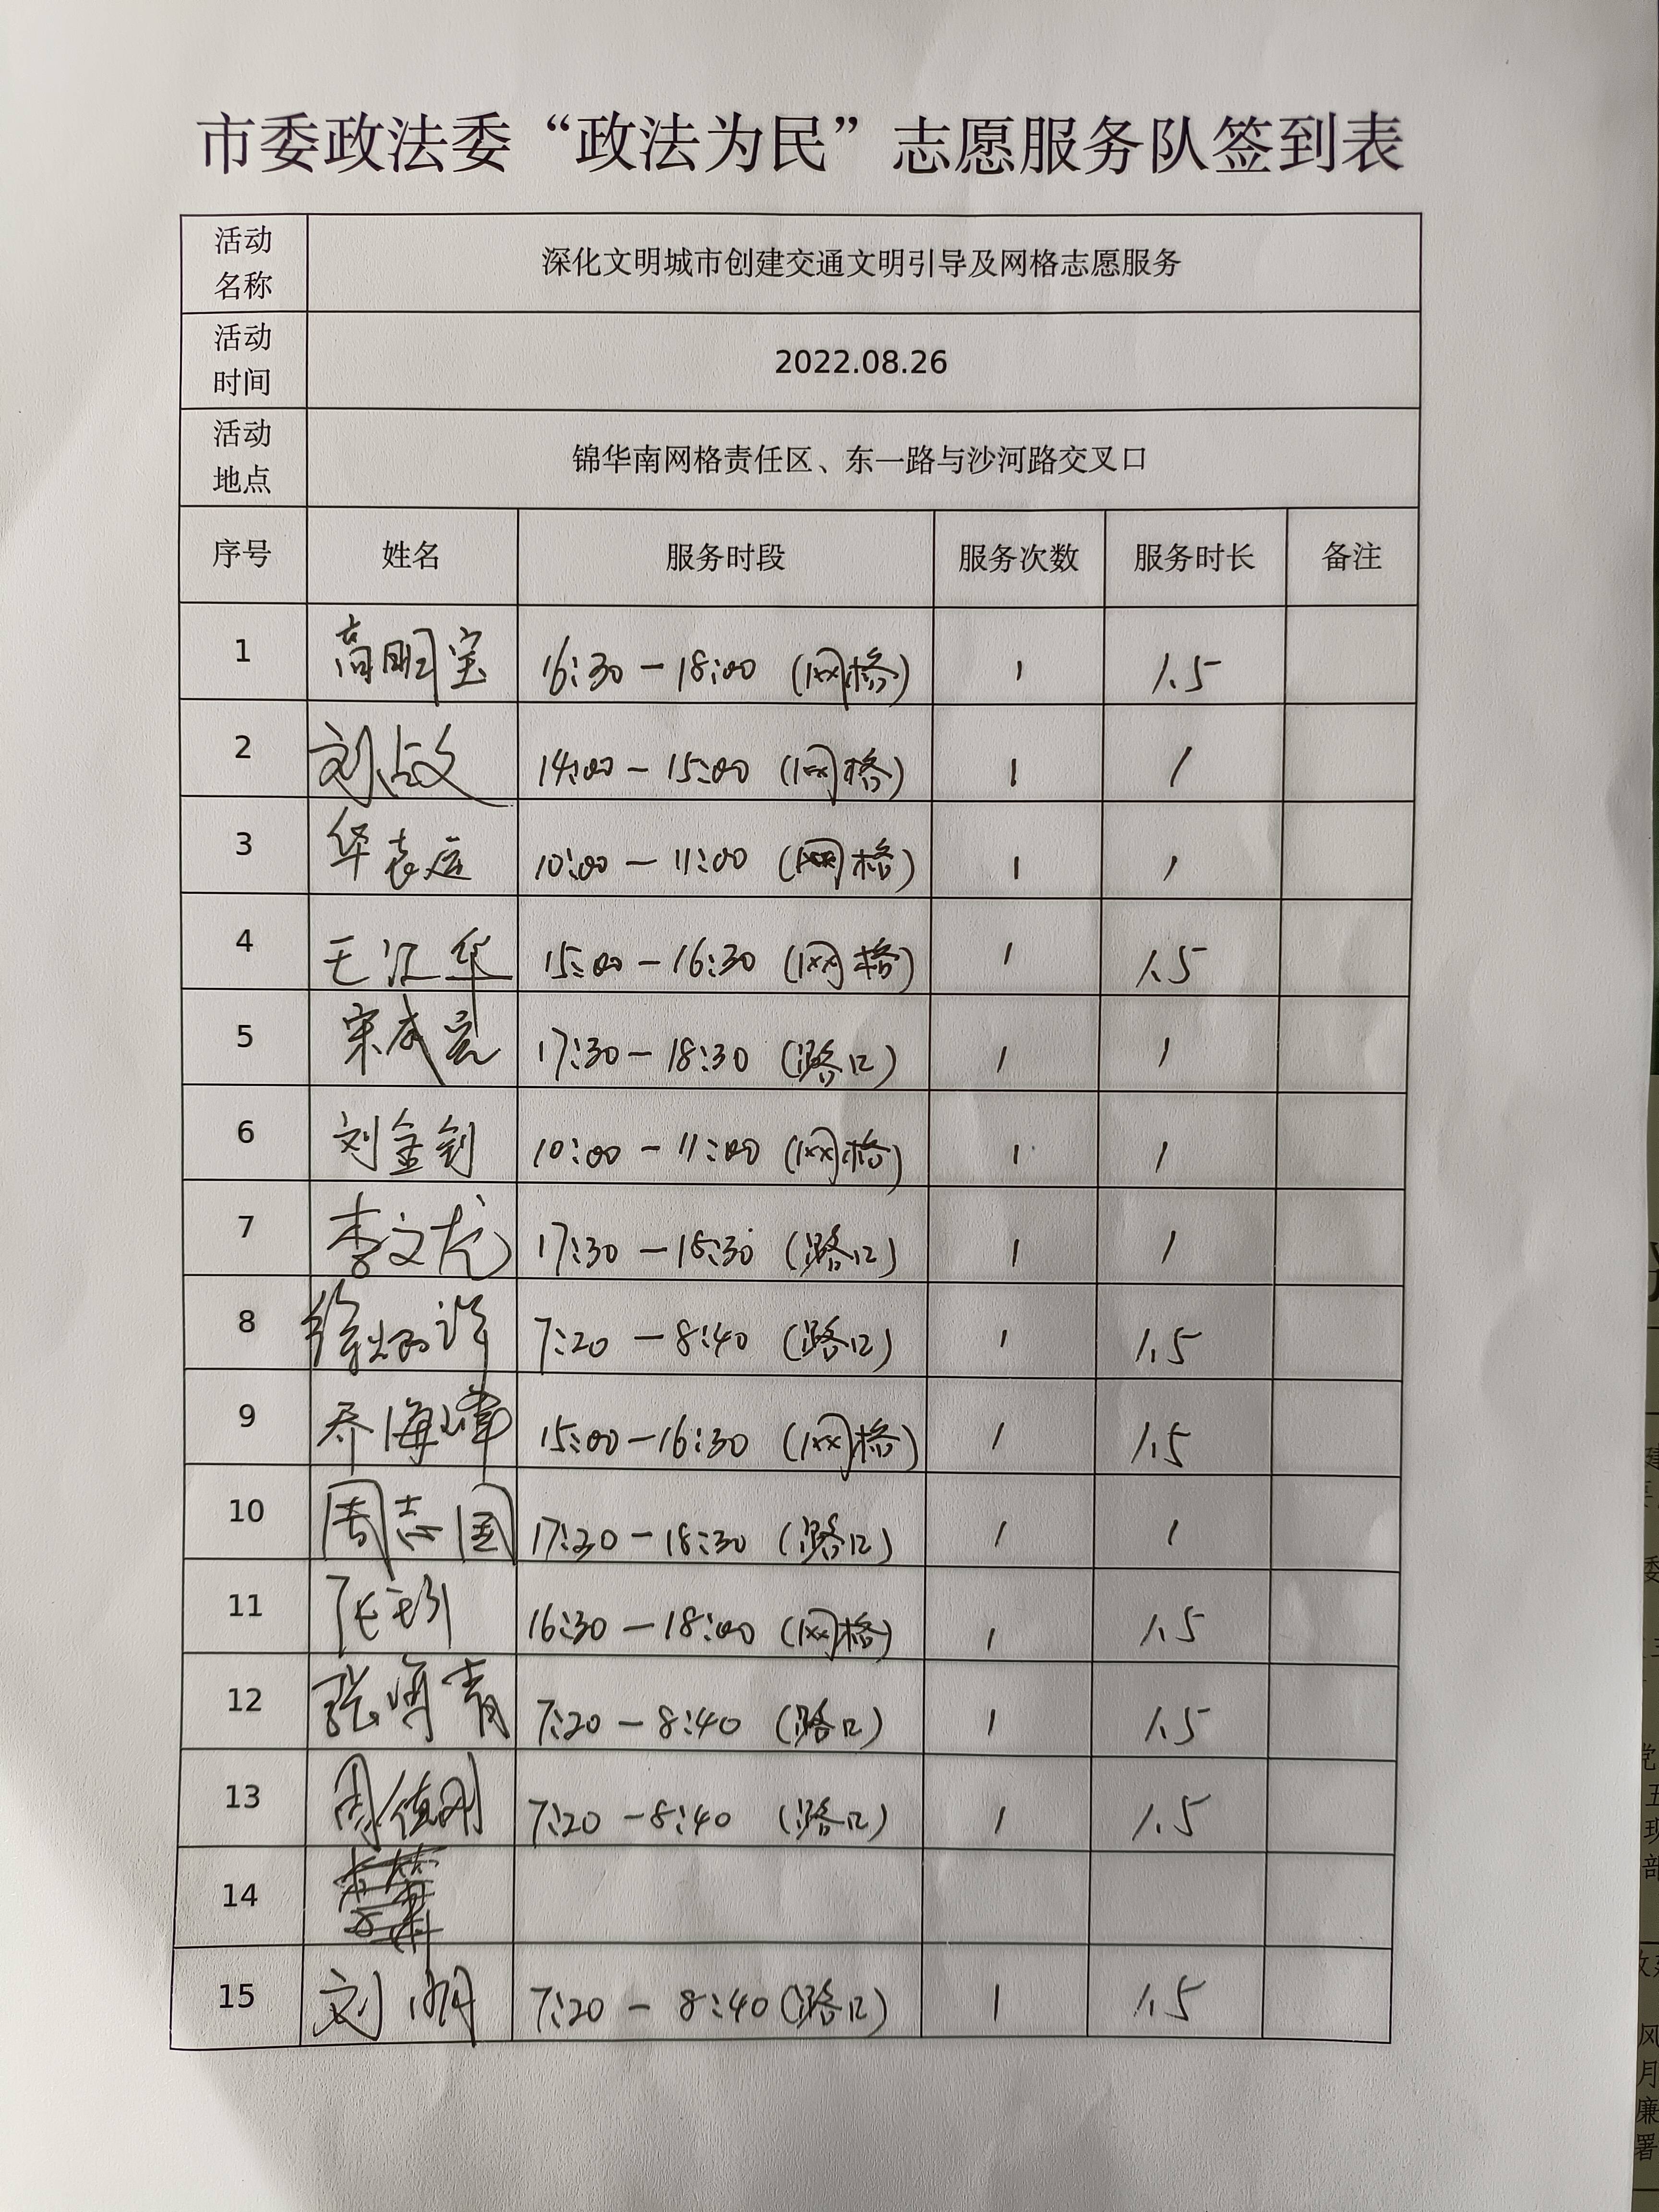 市委政法委“政法为民”志愿服务队签到表
活动名称 深化文明城市创建交通文明引导及网格志愿服务
活动时间 2022.08.26
活动地点 锦华南网格责任区、东一路与沙河路交叉口
序号 姓名 服务时段 服务次数 服务时长 备注
1 高明宝 16:30-18:00 (网格) 1 1.5
2 刘占文 14:00-15:00 (网格) 1 1
3 华 10:00-11:00 (网格) 1 1
4 王江华 15:00-16:30 (网格) 1 1.5
5 宋成亮 17:30-18:30 (路口) 1 1
6 刘金钊 10:00-11:00 (网格) 1 1
7 李文龙 17:30-18:30 (路口) 1 1
8 徐 7:20-8:40 (路口) 1 1.5
9 乔海峰 15:00-16:30 (网格) 1 1.5
10 周志国 17:30-18:30 (路口) 1 1
11 张 16:30-18:00 (网格) 1 1.5
12 张 青 7:20-8:40 (路口) 1 1.5
13 周德刚 7:20-8:40 (路口) 1 1.5
14
15 刘 7:20-8:40 (路口) 1 1.5